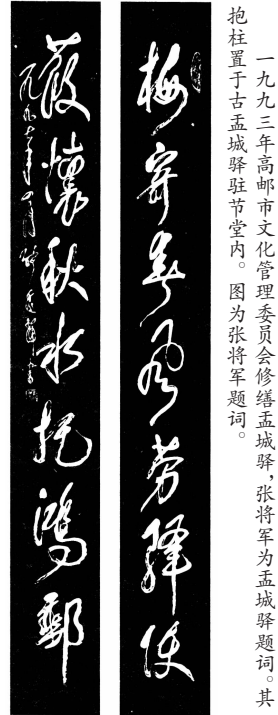 一九九三年高邮市文化管理委员会修缮盂城驿，张将军为盂城驿题词。其
抱柱置于古盂城驿驻节堂内。 图为张将军题词。
梅寄春风劳驿使
葭怀秋水托鸿邮